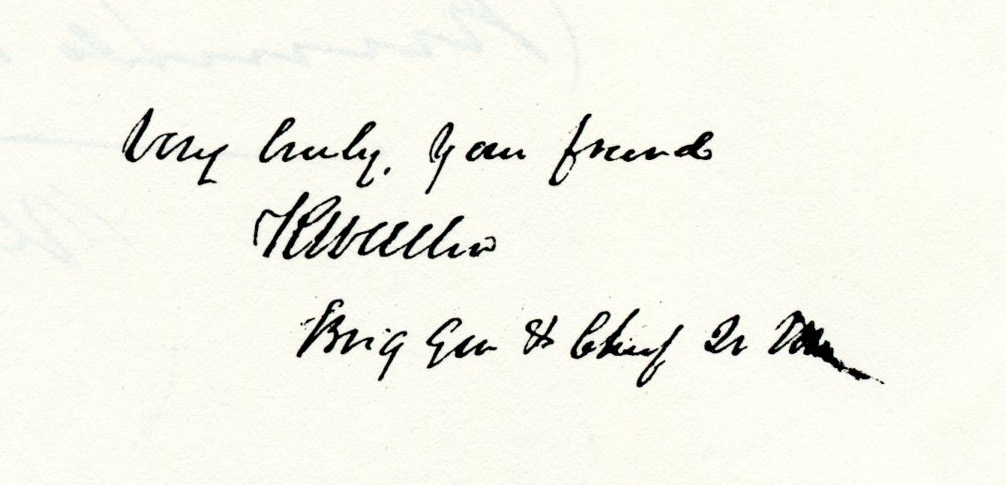 Very truly, your friend
R Allen
Brig Gen & Chief Qr M